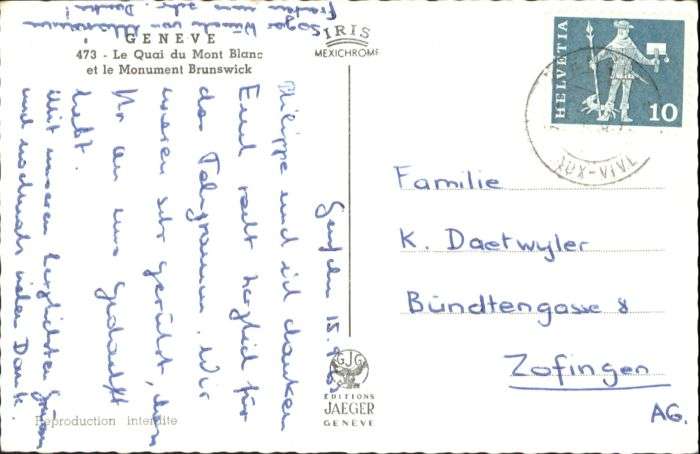 GENEVE
473 - Le Quai du Mont Blanc
et le Monument Brunswick
IRIS
MEXICHROME
HELVETIA
10
AUX-VIVE
Familie
K. Daetwyler
Bündtengasse 8
Zofingen
AG.
Genf den 15.
Philippe und ich danken
Euch recht herzlich für
das Telegramm. Wir
waren sehr gerührt, dass
Ihr an uns gedacht
habt.
Mit unseren herzlichsten Grüssen
und nochmals vielen Dank.
Sogar von
freuten uns sehr. Danke!
GJG
EDITIONS
JAEGER
GENEVE
Reproduction interdite